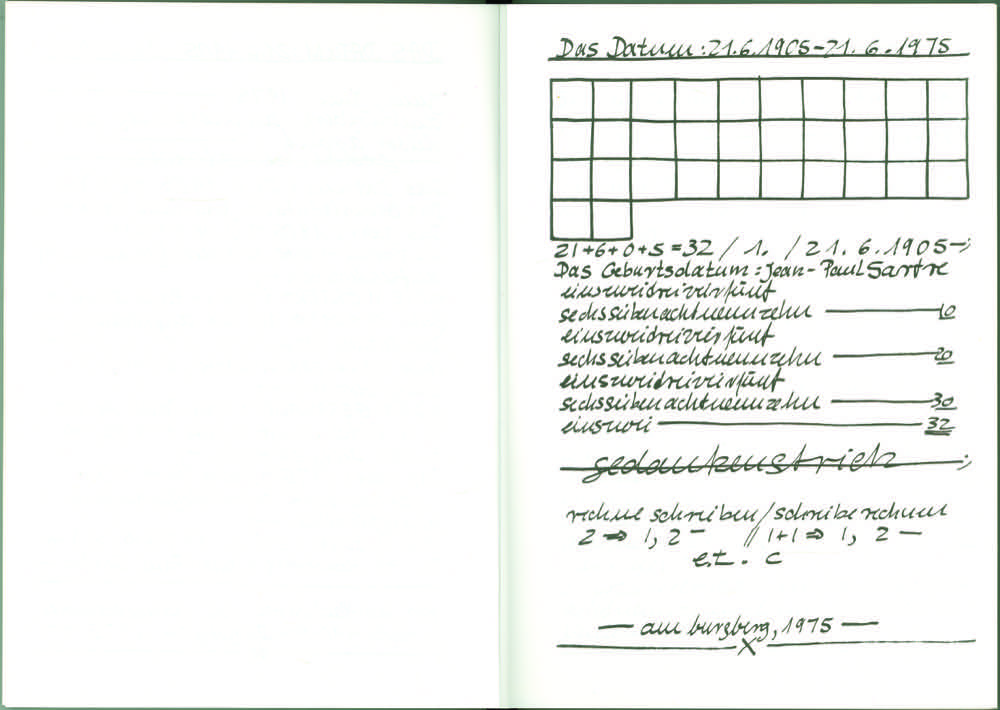 Das Datum: 21.6.1905-21.6.1975
21+6+0+5=32 / 1. / 21.6.1905-;
Das Geburtsdatum: Jean-Paul Sartre
einszweidreivierfünf
sechssiebenachtneunzehn — 10
einszweidreivierfünf
sechssiebenachtneunzehn — 20
einszweidreivierfünf
sechssiebenachtneunzehn — 30
einszwei — 32
gedankenstrich ;
rechne schreiben / schreibe rechnen
2 ⇒ 1, 2 - // 1+1 ⇒ 1, 2 —
e.t. c
— am burgberg, 1975 —
X